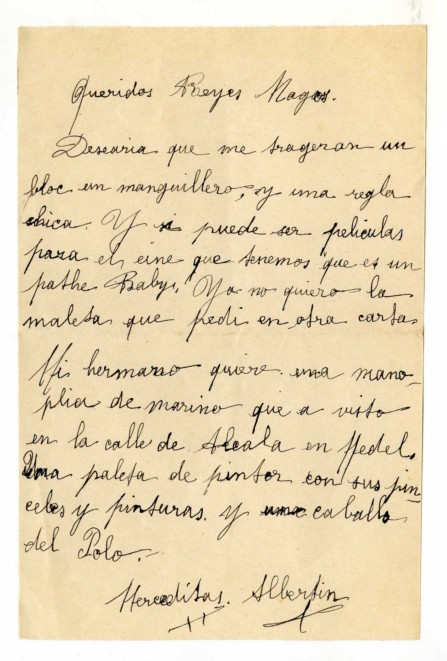 Queridos Reyes Magos.
Desearia que me trageran un
bloc un manguillero, y una regla
chica. Y si puede ser peliculas
para el cine que tenemos que es un
pathe Baby. Ya no quiero la
maleta que pedi en otra carta.
Mi hermano quiere una mano-
plia de marino que a visto
en la calle de Alcala en Medel.
Una paleta de pintor con sus pin-
celes y pinturas. y caballo
del Polo.-
Merceditas. Albertin